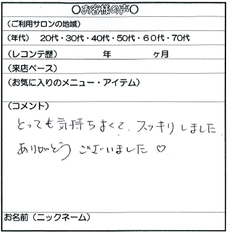 ○お客様の声○
(ご利用サロンの地域)
(年代) 20代・30代・40代・50代・60代・70代
(レコンテ歴) 年 ヶ月
(来店ペース)
(お気に入りのメニュー・アイテム)
(コメント)
とっても気持ちよくて、スッキリしました
ありがとう ございました ♡
お名前(ニックネーム)